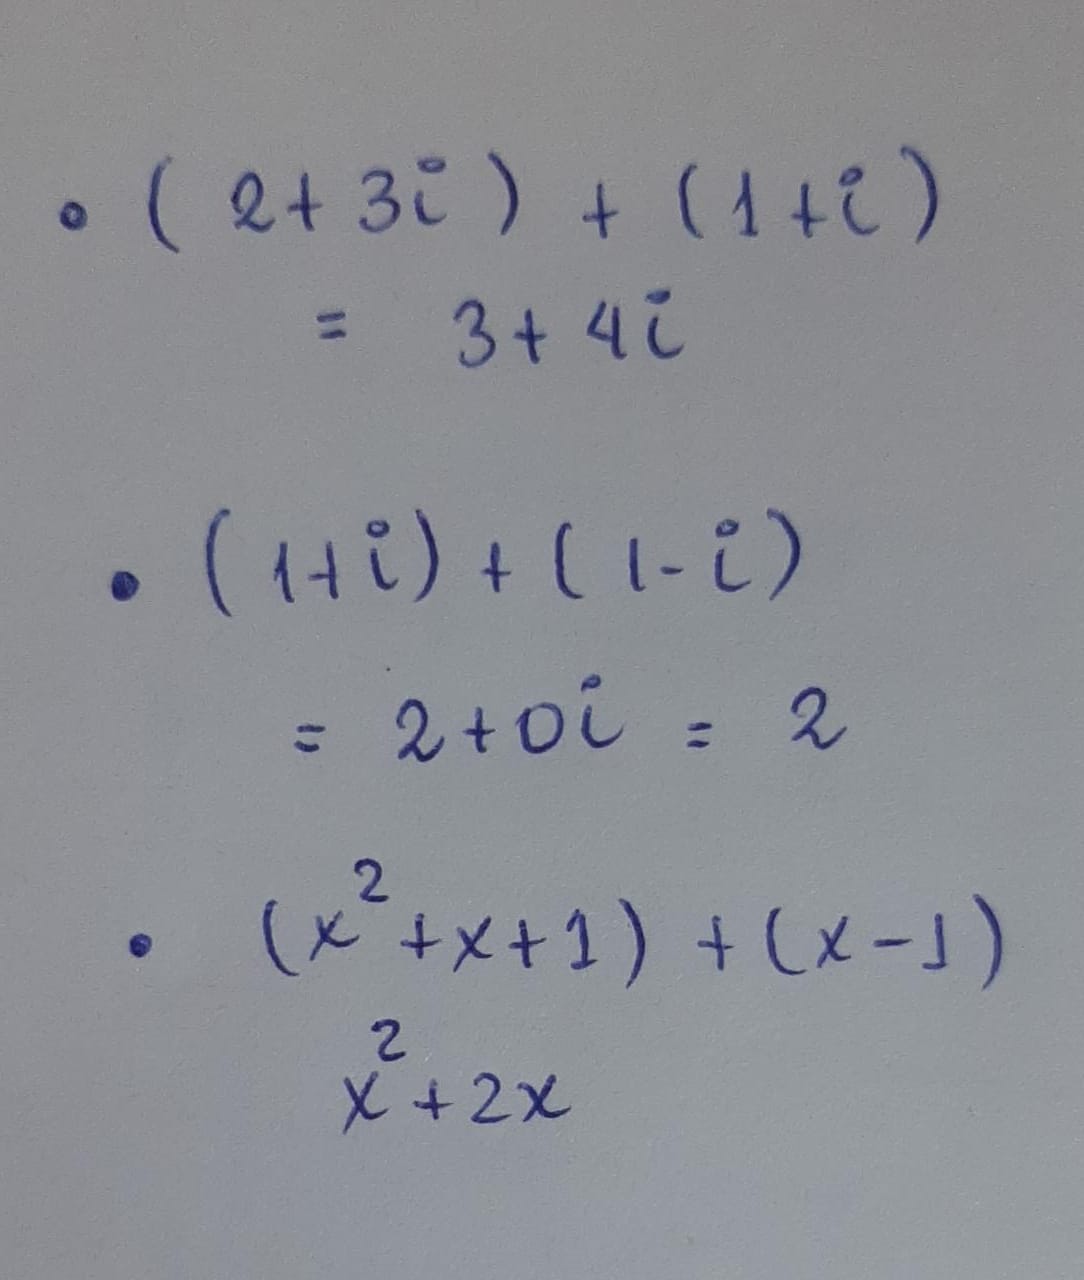 • (2+3i) + (1+i)
= 3+4i
• (1+i)+(1-i)
= 2+0i = 2
• (x²+x+1)+(x-1)
x²+2x